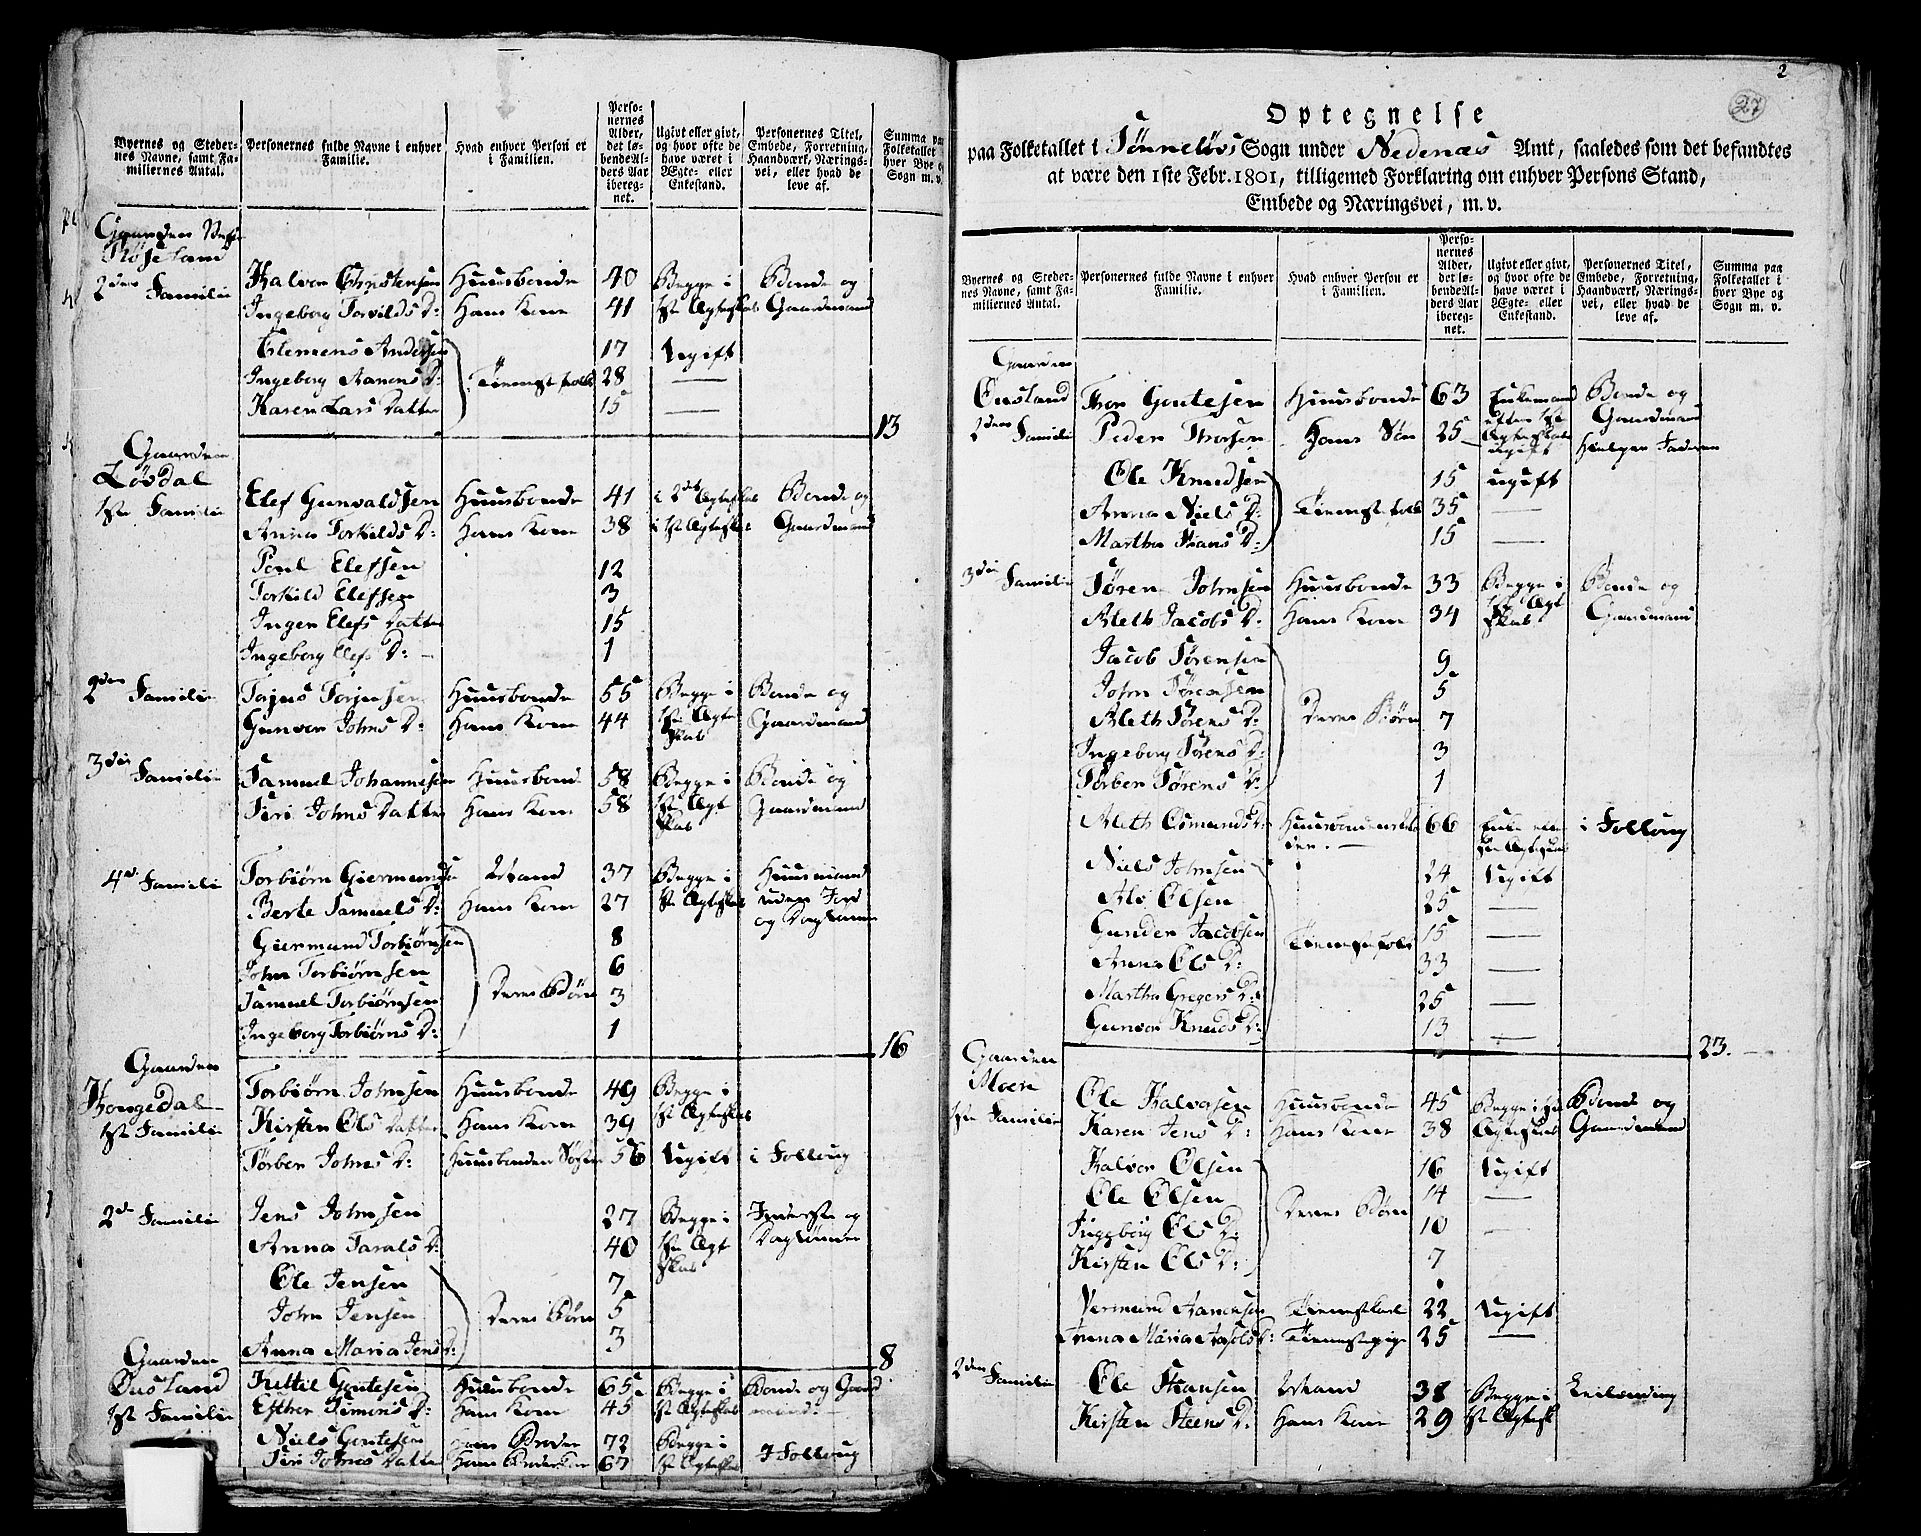 Byernes og Steder-
nes Navne, samt Fa-
miliernes Antal.
Personernes fulde Navne i enhver
Familie.
Hvad enhver Person er
i Familien.
Perso-
nernes
Alder,
det lø-
bende Al-
ders Aar
ibereg-
net.
Ugivt eller givt,
og hvor ofte de
have været i
Ægte- eller
Enkestand.
Personernes Titel,
Embede, Forretning,
Haandværk, Nærings-
vei, eller hvad de
leve af.
Summa paa
Folketallet i
hver Bye og
Sogn m. v.
Gaarden
Røseland
2den Familie Halvor Christensen Huusbonde 40 Begge i Bonde og
Ingeborg Torvilds D: Hans Kone 41 1ste Ægteskab Gaardmand
Clemens Andersen 17 Ugift
Ingeborg Aanens D: Tienestefolk 28 —
Karen Lars Datter 15 —
13
Gaarden
Løvdal
1ste Familie Elef Gunvaldsen Huusbonde 41 i 2det Ægteskab Bonde og
Anna Torkilds D: Hans Kone 38 i 1ste Ægteskab Gaardmand
Poul Elefsen 12
Torkild Elefsen 3
Inger Elefs Datter 15
Ingeborg Elefs D: 1
2den Familie Torjus Torjusen Huusbonde 55 Begge i Bonde og
Gunvor Johns D: Hans Kone 44 1ste Ægte Gaardmand
skab
3die Familie Samuel Johannesen Huusbonde 58 Begge i Bonde og
Siri Johns Datter Hans Kone 58 1ste Ægt Gaardmand
skab
4de Familie Torbiørn Giermunds Mand 37 Begge i Huusmand
Berte Samuels D: Hans Kone 27 1ste Ægteskab uden Jord
og Daglønner
Giermund Torbiørnsen 8
John Torbiørnsen 6
Samuel Torbiørnsen Deres Børn 3
Ingeborg Torbiørns D: 1
16
Gaarden
Hougedal
1ste Familie Torbiørn Johnsen Huusbonde 49 Begge i
Kirsten Ols Datter Hans Kone 39 1ste Ægteskab
Torbor Johns D: Huusbonden Søster 56 Ugift i Folloug
2den Familie Jens Johnsen 27 Begge i Inderste og
Anna Taralds D: 40 1ste Ægt Daglønner
skab
Ole Jensen 7
John Jensen Deres Børn 5
Anna Maria Jens D: 3
8
Gaarden
Ousland
1ste Familie Kettil Goutesen Huusbonde 65 Begge i Bonde og Gaard
Esther Simons D: Hans Kone 45 1ste Ægteskab mand
Niels Goutesen Hans Broder 72 Begge i
Siri Johns Datter 67 1ste Ægteskab I Folloug
2
27
Optegnelse
paa Folketallet i Tønneløvs Sogn under Nedenæs Amt, saaledes som det befandtes
at være den 1ste Febr. 1801, tilligemed Forklaring om enhver Persons Stand,
Embede og Næringsvei, m. v.
Byernes og Steder-
nes Navne, samt Fa-
miliernes Antal.
Personernes fulde Navne i enhver
Familie.
Hvad enhver Person er
i Familien.
Perso-
nernes
Alder,
det lø-
bende Al-
ders Aar
ibereg-
net.
Ugivt eller givt,
og hvor ofte de
have været i
Ægte- eller
Enkestand.
Personernes Titel,
Embede, Forretning,
Haandværk, Nærings-
vei, eller hvad de
leve af.
Summa paa
Folketallet i
hver Bye og
Sogn m. v.
Gaarden
Ousland Thor Goutesen Huusbonde 63 Enkemand Bonde og
efter 1ste Gaardmand
2den Familie Peder Thorsen Hans Søn 25 Ægteskab
ugift Hielper Faderen
Ole Knudsen 15 ugift
Anna Niels D: Tienestefolk 35 —
Martha Hans D: 15 —
3die Familie Søren Johnsen Huusbonde 33 Begge i Bonde og
Aleth Jacobs D: Hans Kone 34 1ste Ægt Gaardmand
skab
Jacob Sørensen 9
John Sørensen 5
Aleth Sørens D: Deres Børn 7
Ingeborg Sørens D: 3
Torbor Sørens D: 1
Aleth Osmunds D: Huusbondens Mo 66 Enke efter i Folloug
der. 1ste Ægteskab
Niels Johnsen 24 Ugift
Alv Olsen 25 —
Gunder Jacobsen Tienestefolk 15 —
Anna Ols D: 33 —
Martha Gregers D: 25 —
Gunvor Knuds D: 13 —
23.
Gaarden
Moen
1ste Familie Ole Halvorsen Huusbonde 45 Begge i 1ste Bonde og
Karen Jens D: Hans Kone 38 Ægteskab Gaardmand
Halvor Olsen 16 Ugift
Ole Olsen Deres Børn 14 —
Ingeborg Ols D: 10 —
Kirsten Ols D: 7
Vermund Aanensen Tienestekarl 22 Ugift
Anna Maria D: Tienestepige 25 —
2den Familie Ole Hansen Mand 38 Begge i
Kirsten Steens D: Hans Kone 29 1ste Ægtesk